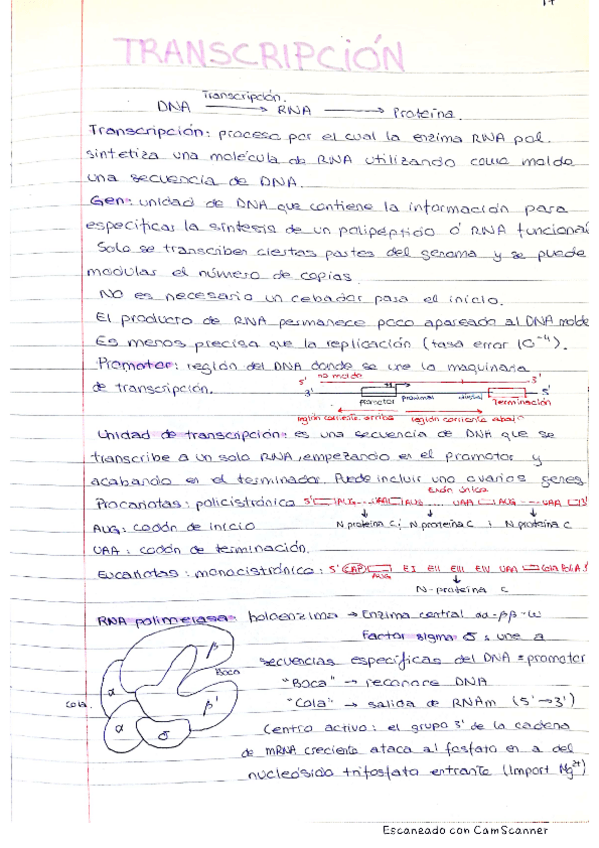 17
TRANSCRIPCIÓN
Transcripción.
DNA → RNA → Proteína.
Transcripción: proceso por el cual la enzima RNA pol.
sintetiza una molécula de RNA utilizando como molde
una secuencia de DNA.
Gen: unidad de DNA que contiene la información para
especificar la síntesis de un polipéptido ó RNA funcional
Solo se transcriben ciertas partes del genoma y se puede
modular el número de copias
No es necesario un cebador para el inicio.
El producto de RNA permanece poco apareado al DNA molde
Es menos precisa que la replicación (tasa error 10⁻⁴).
Promotor: región del DNA donde se une la maquinaria
de transcripción.
5' no molde 3'
3' 5'
promotor proximal distal Terminación
región corriente arriba región corriente abajo
Unidad de transcripción: es una secuencia de DNA que se
transcribe a un solo RNA, empezando en el promotor y
acabando en el terminador. Puede incluir uno o varios genes
exón único
Procariotas: policistrónica 5' AUG ... UAA AUG ... UAA AUG --- UAA 3'
AUG: codón de inicio N proteína C; N proteína C ; N proteína C
UAA: codón de terminación.
Eucariotas: monocistrónica: 5' CAP EI EII EIII EIV UAA Cola Poli A
AUG
N-proteína C
RNA polimerasa: holoenzima → Enzima central αα-ββ'-ω
Factor sigma σ: une a
secuencias específicas del DNA = promotor
"Boca" → reconoce DNA
"Cola" → salida de RNAm (5'→3')
Centro activo: el grupo 3' de la cadena
de mRNA creciente ataca al fosfato en α del
nucleósido trifosfato entrante (Import Mg²⁺)
β
Boca
α
Cola
β'
α
σ
Escaneado con CamScanner